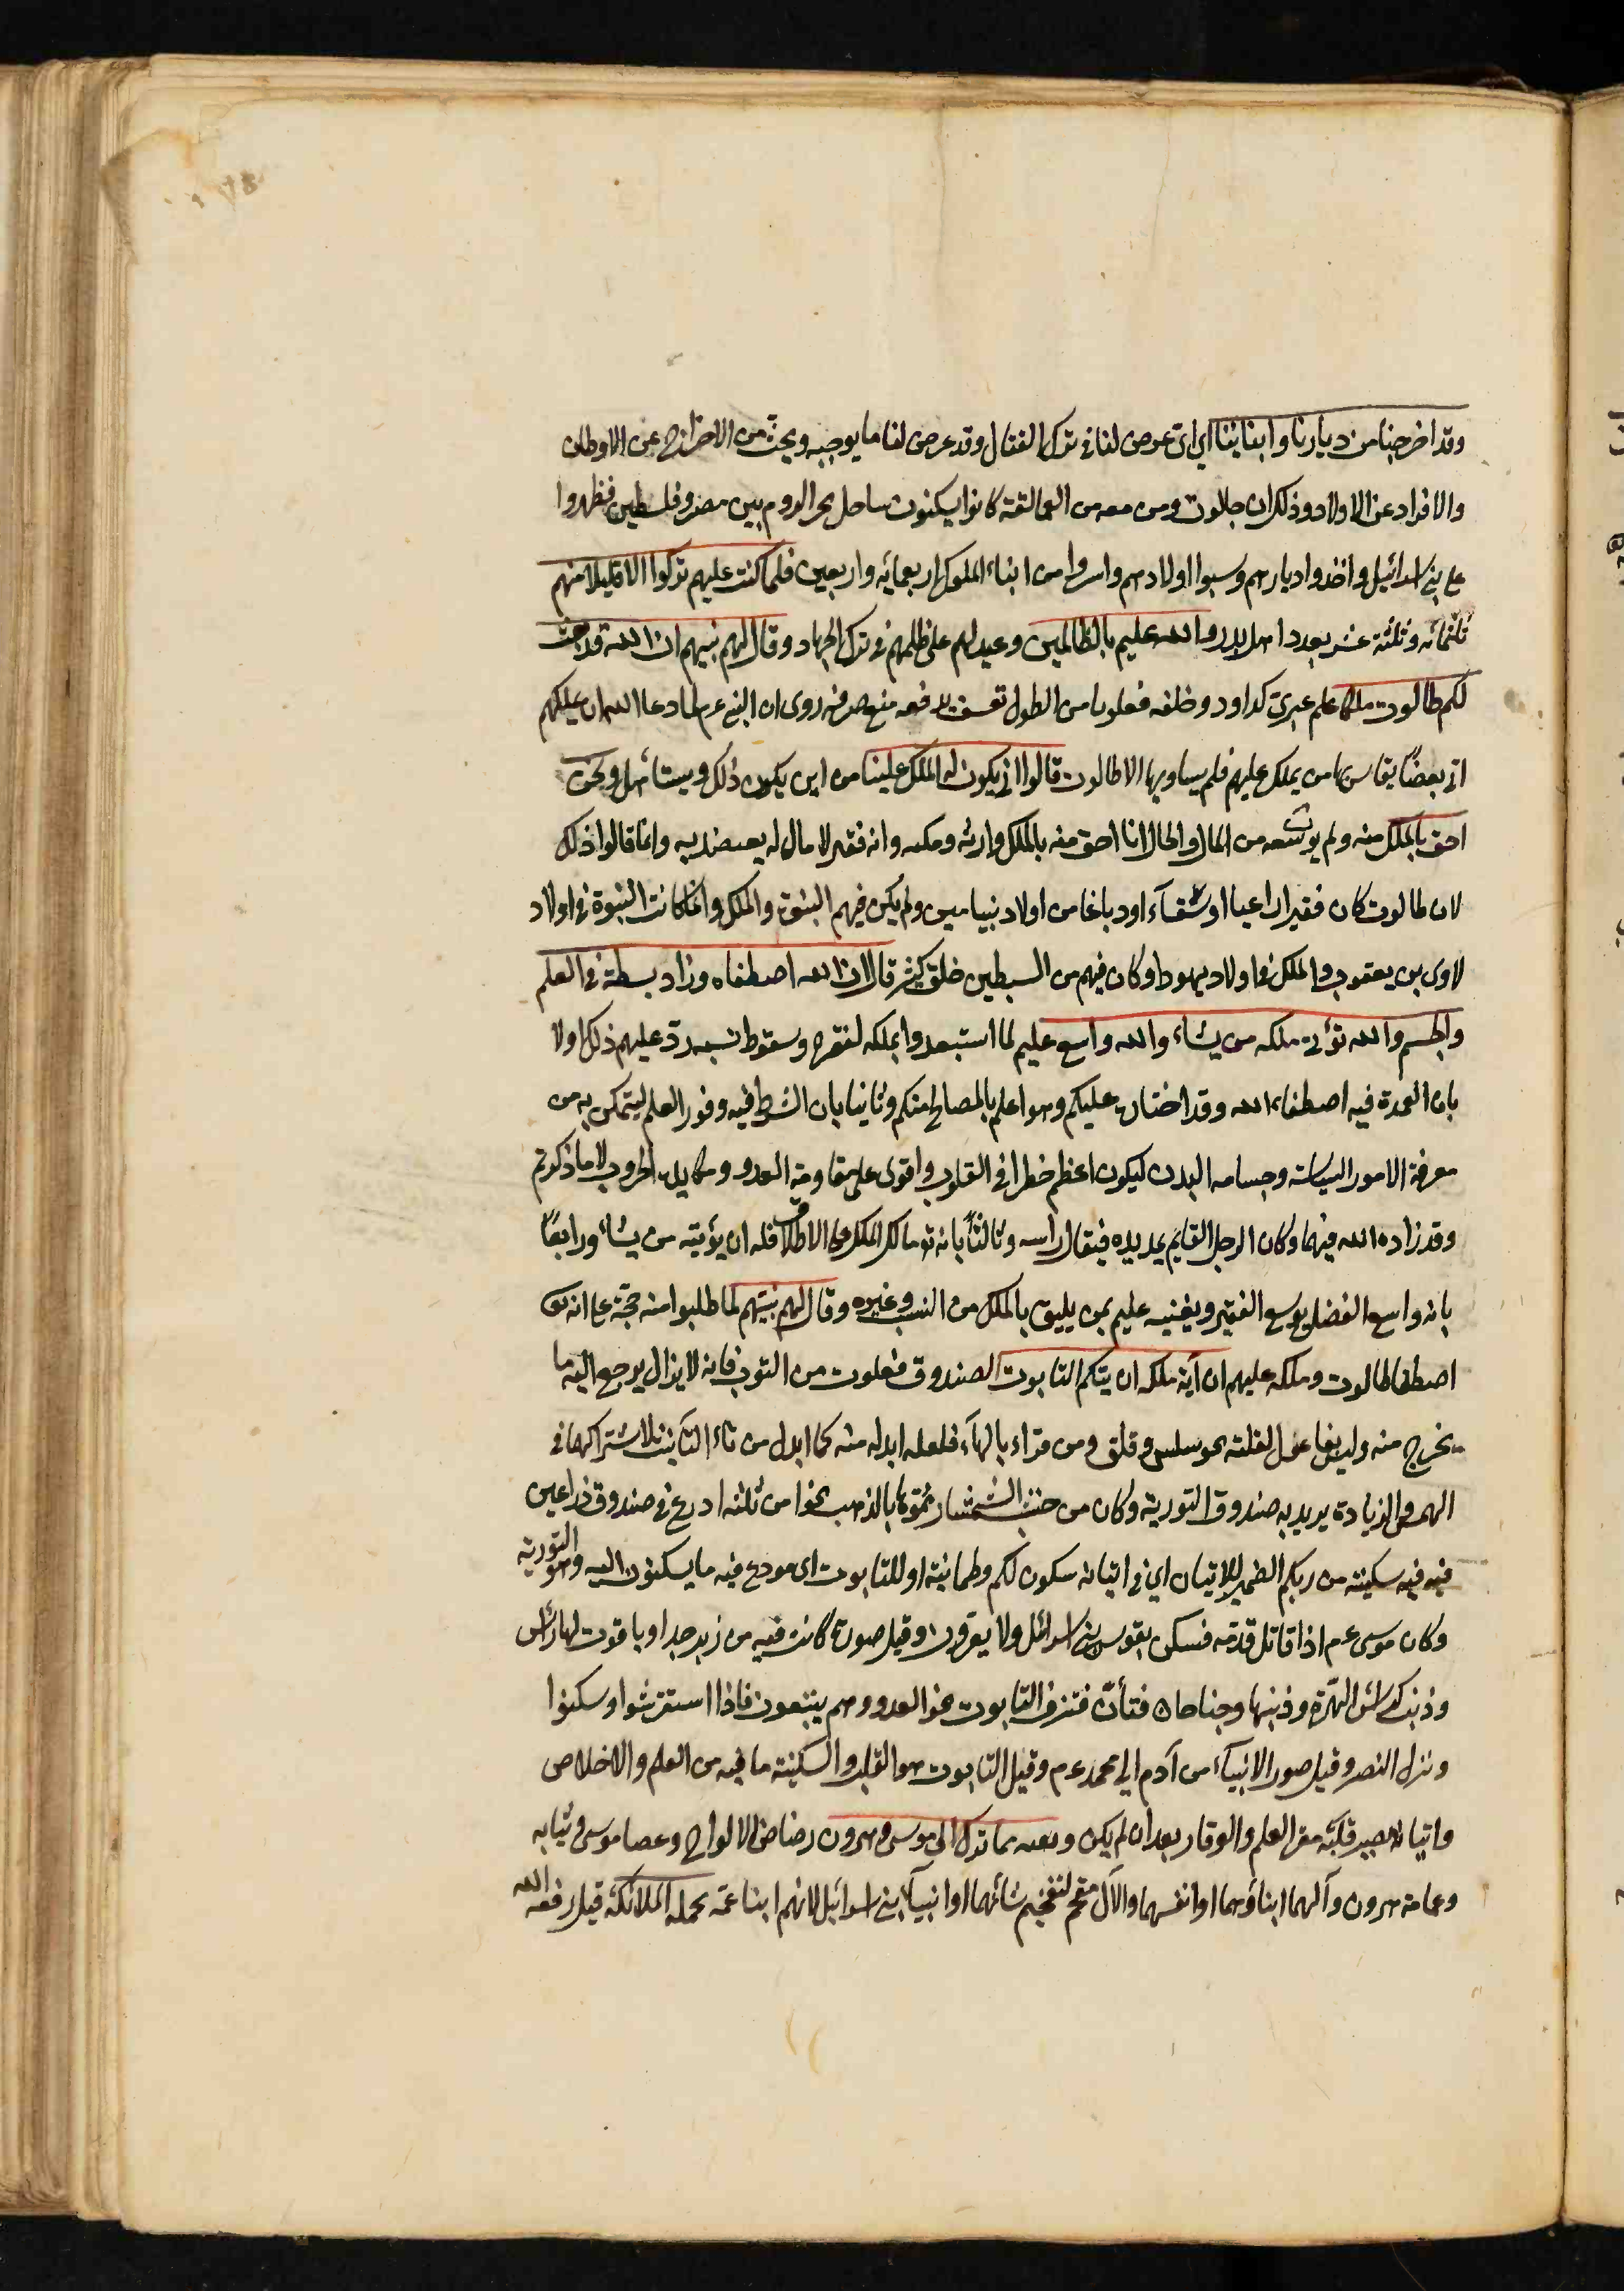 وقد اخرجنا من ديارنا وابنائنا اي اى غرض لنا فى ترك القتال وقد عرض لنا ما يوجبه ويحث من الاخراج عن الاوطان
والافراد عن الاولاد وذلك ان جالوت ومن معه من العمالقة كانوا يسكنون ساحل بحر الروم بين مصر وفلسطين فظهروا
على بنى اسرائيل واخذوا ديارهم وسبوا اولادهم واسروا من ابناء الملوك اربعمائه واربعين فلما كتب عليهم تركوا الا قليلا منهم
ثلثمائه وثلثة عشر بعدد اهل بدر والله عليم بالظالمين وعيد لهم على ظلمهم فى ترك الجهاد وقال لهم نبيهم ان الله قد بعث
لكم طالوت ملكا علم عبرى كداود وخلفه فعلوتا من الطول تعسف يدفعه منع صرفه روى ان النبى عم لما دعا الله ان يملكهم
اتى بعضا يقاس بها من يملك عليهم فلم يساويها الا طالوت قالوا انى يكون له الملك علينا من اين يكون ذلك ويستاهل ونحن
احق بالملك منه ولم يوت سعه من المال والحال انا احق منه بالملك وارثه ومكنه وانه فقير لا مال له يعتضد به وانما قالوا ذلك
لان طالوت كان فقيرا راعيا او سقاء او دباغا من اولاد بنيامين ولم يكن فيهم النبوة والملك وانما كانت النبوة فى اولاد
لاوى بن يعقوب والملك فى اولاد يهودا وكان فيهم من السبطين خلق كثير قال ان الله اصطفاه وزاد بسطة فى العلم
والجسم والله يؤتى ملكه من يشاء والله واسع عليم لما استبعدوا بملكه لفقره وسقوط نسبه رد عليهم ذلك اولا
بان العمدة فيه اصطفاء الله وقد اختاره عليكم وهو اعلم بالمصالح منكم وثانيا بان الشرط فيه وفور العلم ليتمكن به من
معرفة الامور السياسة وجسامه البدن ليكون اعظم خطرا فى القلوب واقوى على مقاومة العدو ومكايد الحروب لا ما ذكرتم
وقد زاده الله فيهما وكان الرجل القايم يمد يده فينال راسه وثالثا بانه تعا مالك الملك على الاطلاق فله ان يؤتيه من يشاء ورابعا
بانه واسع الفضل يوسع الفقير ويغنيه عليم بمن يليق بالملك من النسب وغيره وقال لهم نبيهم لما طلبوا منه حجة على انه تعا
اصطفى طالوت وملكه عليهم ان آية ملكه ان يتكم التابوت الصندوق فعلوت من التوب فانه لا يزال يرجع اليه ما
يخرج منه وليس بفاعول لقلته نحو سلس وقلق ومن قراء بالهاء فلعله ابدله منه كما ابدل من تاء التانيث لاشتراكهما فى
الهمس والزيادة يريد به صندوق التورية وكان من خشب الشمشار مموها بالذهب نحوا من ثلثه ادرع فى صندوق ذراعين
فيه فيه سكينة من ربكم الضمير للاتيان اي فى اتيانه سكون لكم وطمانية او للتابوت اى مودع فيه ما يسكنون اليه وهو التورية
وكان موسى عم اذا قاتل قدمه فسكن نفوس بنى اسرائل ولا يفرون وقيل صورة كانت فيه من زبرجد او ياقوت لها راس
وذنب كراس الهرة وذنبها وجناحان فتأن فتزف التابوت نحو العدو وهم يتبعون فاذا استقر ثبتوا وسكنوا
ونزل النصر وقيل صور الانبياء من آدم الى محمد عم وقيل التابوت هو القلب والسكينة ما فيه من العلم والاخلاص
واتيانه مصير قلبه مقر العلم والوقار بعد ان لم يكن وبقيه مما ترك ال موسى وهرون رضاض الالواح وعصا موسى وثيابه
وعمامة هرون وآلهما ابناؤهما او انفسهما والآل مقحم لتفخيم شانهما او انبياء بنى اسرائيل لانهم ابنا عمه تحمله الملائكة قيل رفعه الله